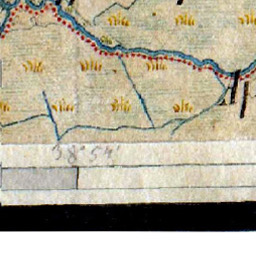 38°54'